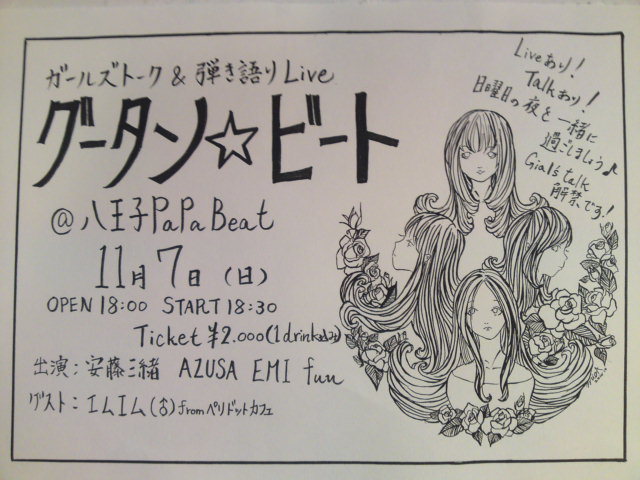 ガールズトーク & 弾き語り Live
グータン☆ビート
@ 八王子 PaPa Beat
11月 7日 (日)
OPEN 18:00 START 18:30
Ticket ¥2.000(1drink込み)
出演: 安藤三緒 AZUSA EMI fuu
ゲスト: エムイム(♂)fromペリドットカフェ
Liveあり!
Talkあり!
日曜日の夜を一緒に
過ごしましょう♪
Gial's talk
解禁です!